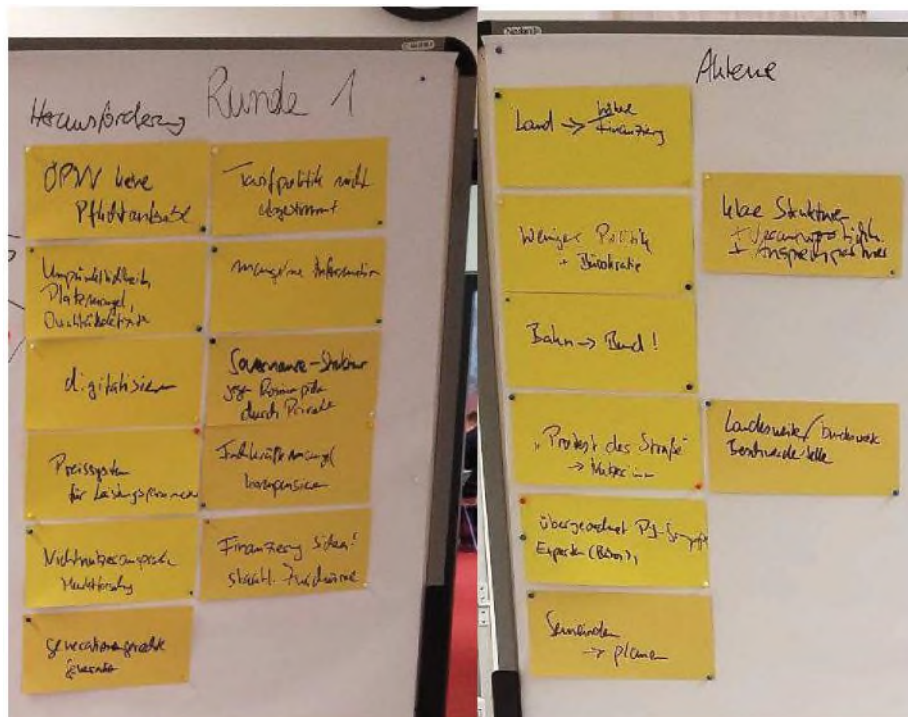 Runde 1
Herausforderung
ÖPNV keine
Pflichtaufgabe
Unpünktlichkeit,
Platzmangel,
Qualitätsdefizite
digitalisieren
Preissystem
für Leistungsparameter
Nichtnutzeransprache
Marktforschung
generationengerechte
Tarifpolitik nicht
abgestimmt
mangelnde Information
Governance-Struktur
durch Private
Fachkräftemangel
kompensieren
Finanzierung sichern!
staatl.
Akteure
Land → höhere
Finanzierung
Weniger Politik
+ Bürokratie
Bahn → Bund!
"Protest der Straße"
→ Nutzer:innen
übergeordnet
Experten (Büros),
Gemeinden
→ planen
klare Strukturen
+ Verantwortlichk.
+ Ansprechpartner
Landesweite/bundesweite
Beschwerdestelle